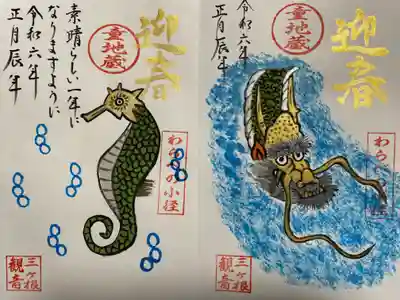 迎春
童地蔵
素晴らしい一年に
なりますように
令和六年
正月辰年
わらべの小径
三ヶ根
観音
迎春
童地蔵
令和六年
正月辰年
三ヶ根
観音